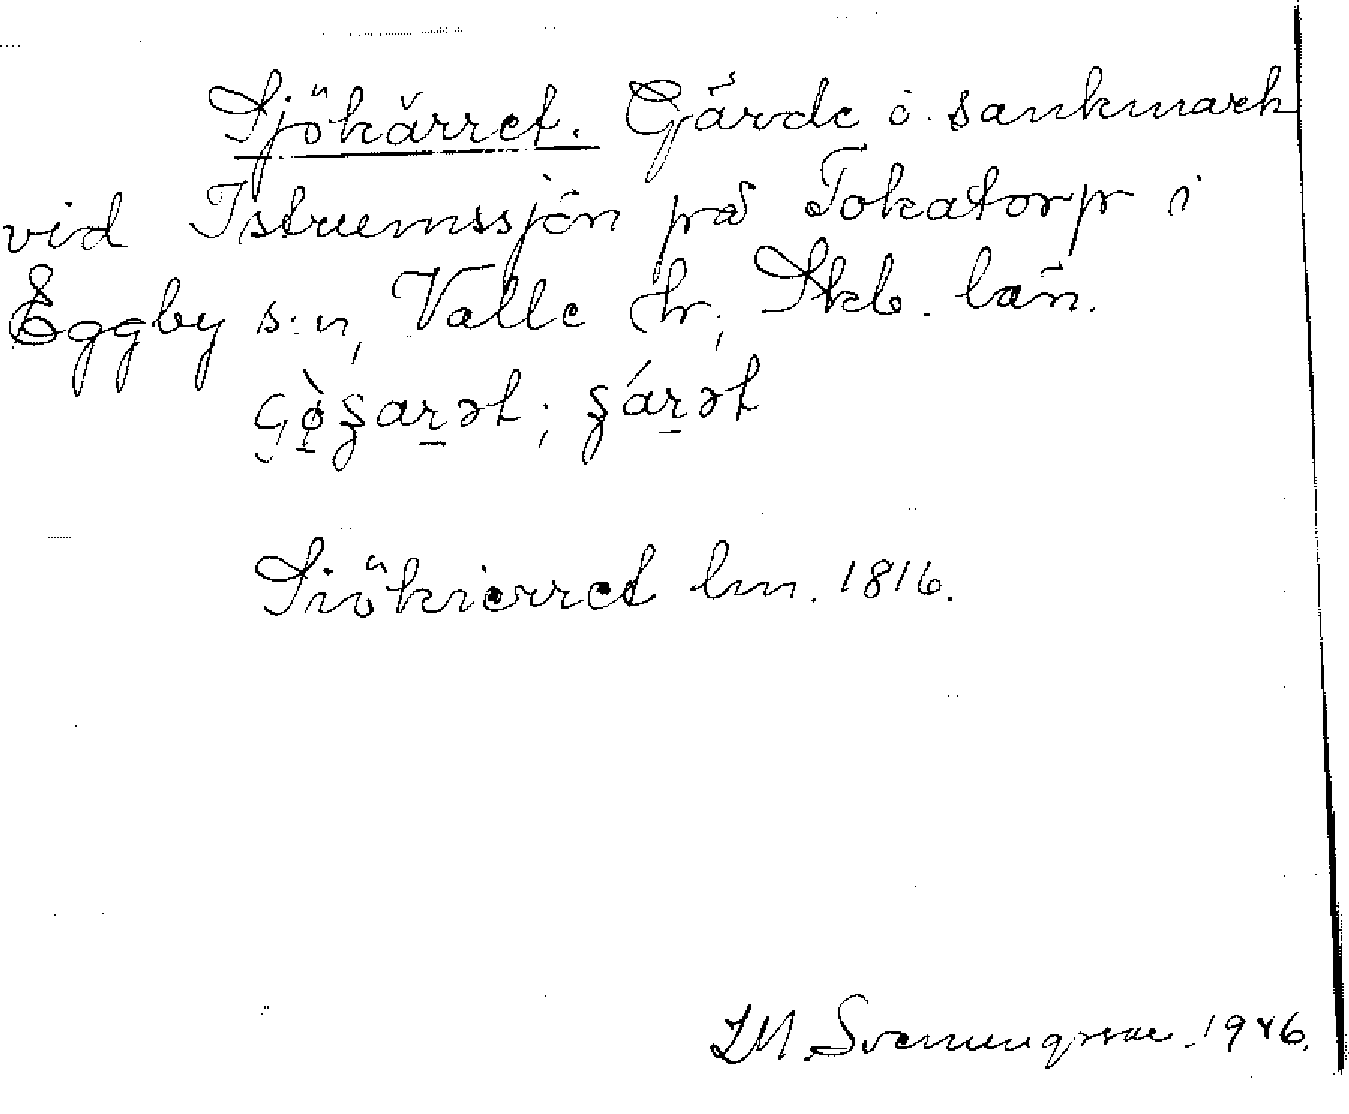 Sjökärret. Gärde o. sankmark
vid Istrumssjön på Tokatorp i
Eggby s:n, Valle hr, Skb. län.
Sjökierret lm. 1816.
L M. Svenungsson. 1946.